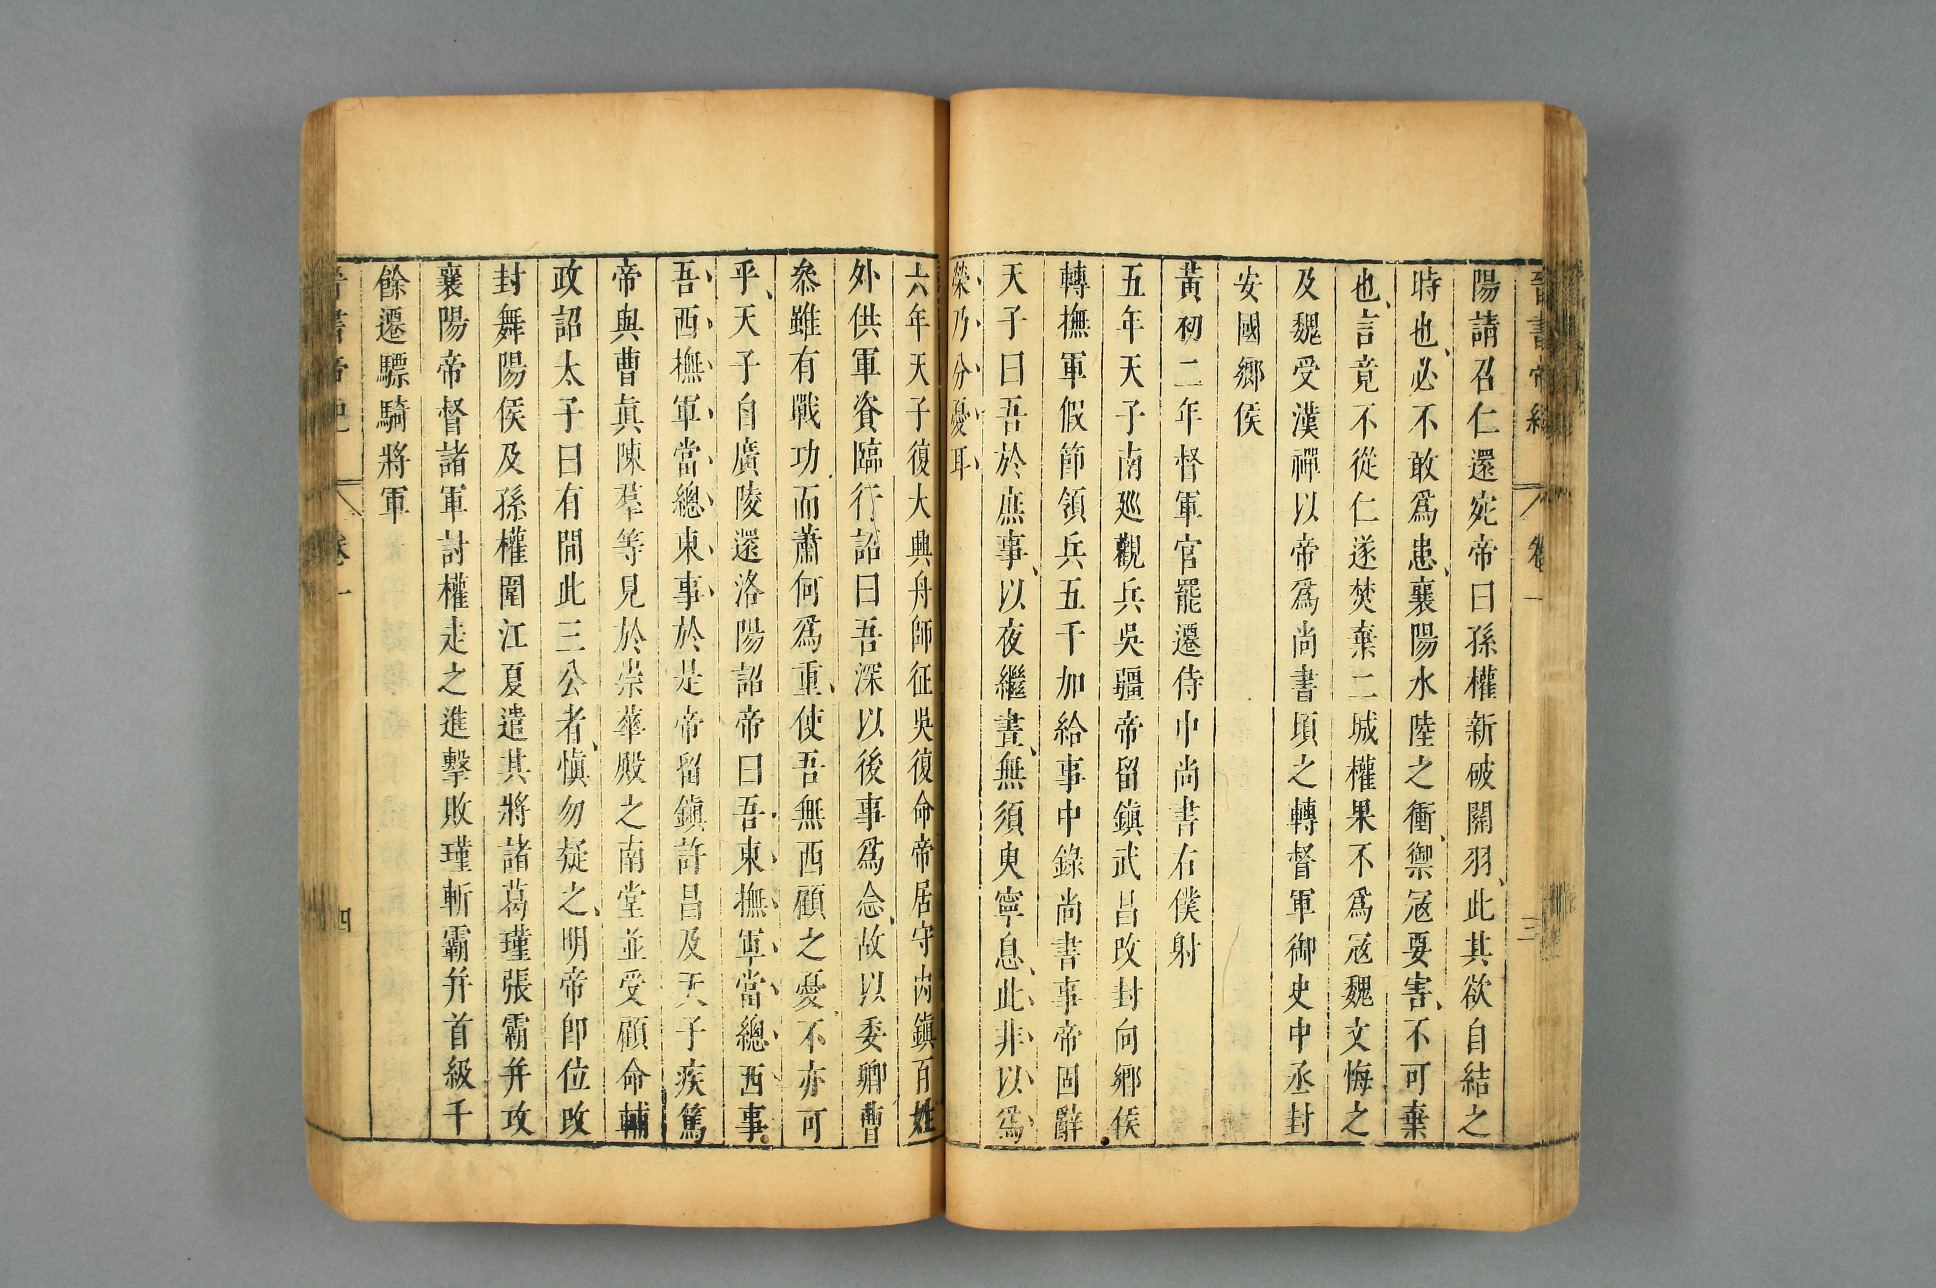 晉書帝紀 卷一 三
陽請召仁還宛帝曰孫權新破關羽、此其欲自結之
時也、必不敢爲患、襄陽水陸之衝、禦寇要害、不可棄
也、言竟不從仁遂焚棄二城權果不爲寇魏文悔之
及魏受漢禪以帝爲尚書頃之轉督軍御史中丞封
安國鄉侯
黃初二年督軍官罷遷侍中尚書右僕射
五年天子南廵觀兵吳疆帝留鎭武昌改封向鄉侯
轉撫軍假節領兵五千加給事中錄尚書事帝固辭
天子曰吾於庶事、以夜繼晝、無須臾寧息、此非以爲
榮乃分憂耳
六年天子復大興舟師征吳復命帝居守內鎭百姓
外供軍資臨行詔曰吾深以後事爲念、故以委卿曹
叅雖有戰功而蕭何爲重、使吾無西顧之憂不亦可
乎、天子自廣陵還洛陽詔帝曰吾東撫軍當總西事
吾西撫軍當總東事於是帝留鎭許昌及天子疾篤
帝與曹眞陳羣等見於崇華殿之南堂並受顧命輔
政詔太子曰有閒此三公者、愼勿疑之、明帝卽位改
封舞陽侯及孫權圍江夏遣其將諸葛瑾張霸幷攻
襄陽帝督諸軍討權走之進擊敗瑾斬霸幷首級千
餘遷驃騎將軍
晉書帝紀 卷一 四